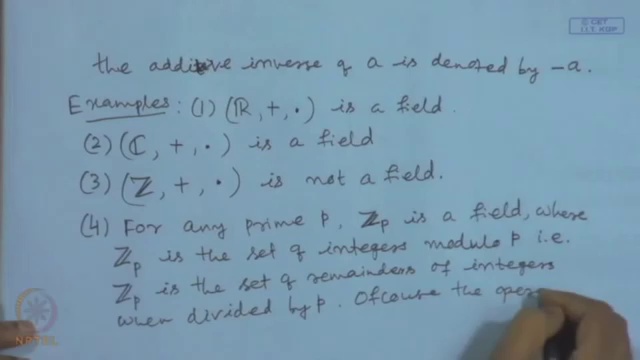 © CET
I.I.T. KGP
the additive inverse of a is denoted by -a.
Examples: (1) (ℝ, +, ·) is a field.
(2) (ℂ, +, ·) is a field
(3) (ℤ, +, ·) is not a field.
(4) For any prime p, ℤp is a field, where
ℤp is the set of integers modulo p i.e.
ℤp is the set of remainders of integers
when divided by p. Ofcourse the oper
NPTEL